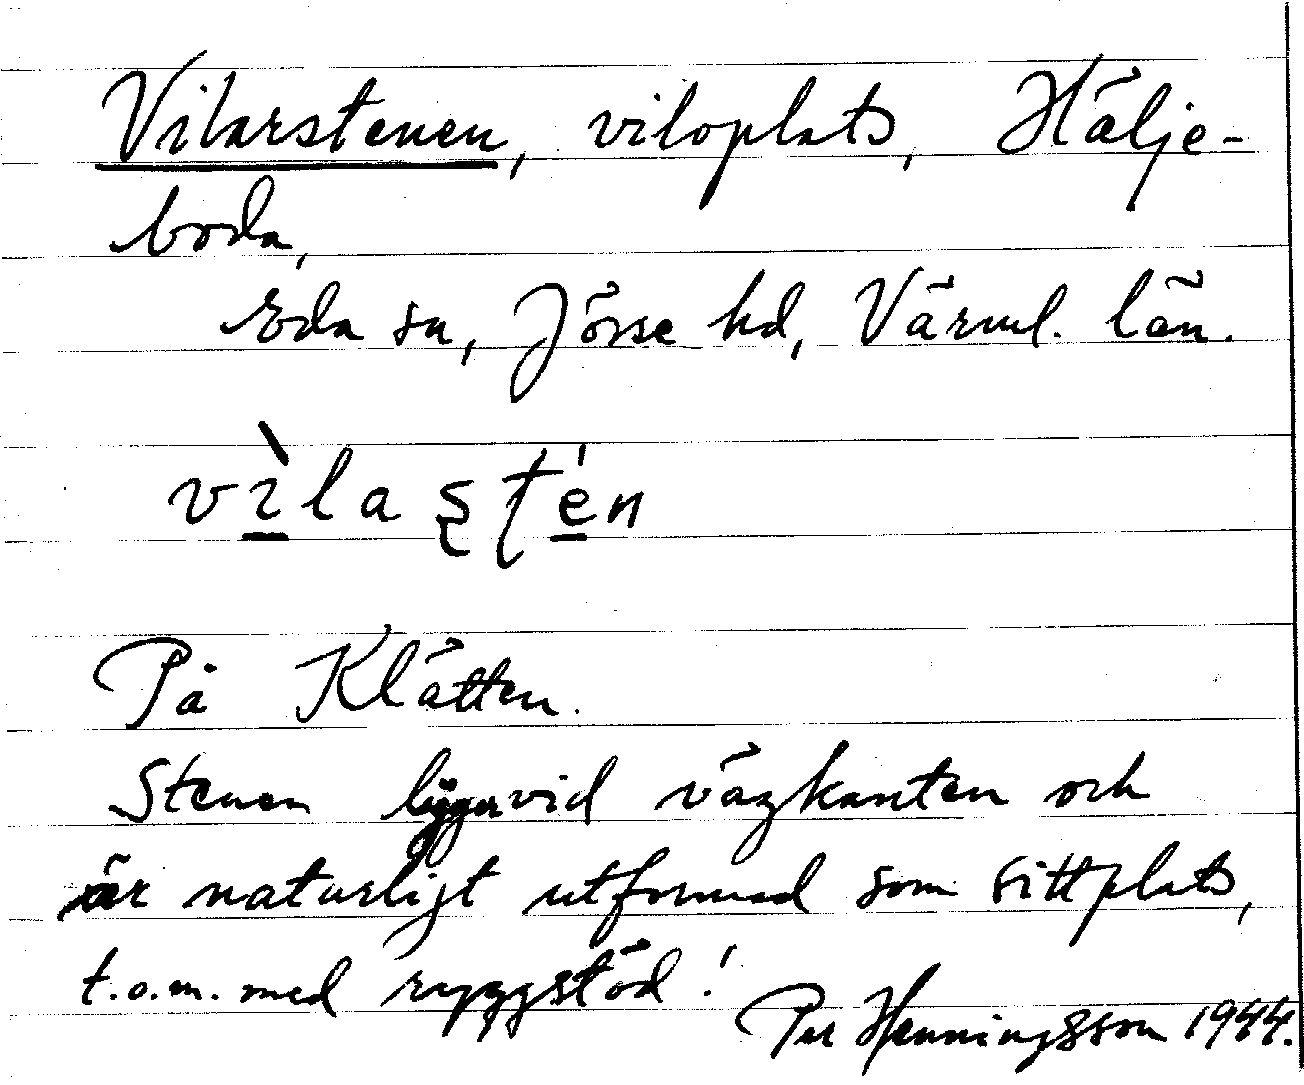 Vilarstenen, viloplats, Hälje-
boda,
Eda sn, Jösse hd, Värml. län.
vìlaştén
På Klätten.
Stenen ligger vid vägkanten och
är naturligt utformad som sittplats,
t.o.m. med ryggstöd!
Per Henningsson 1944.